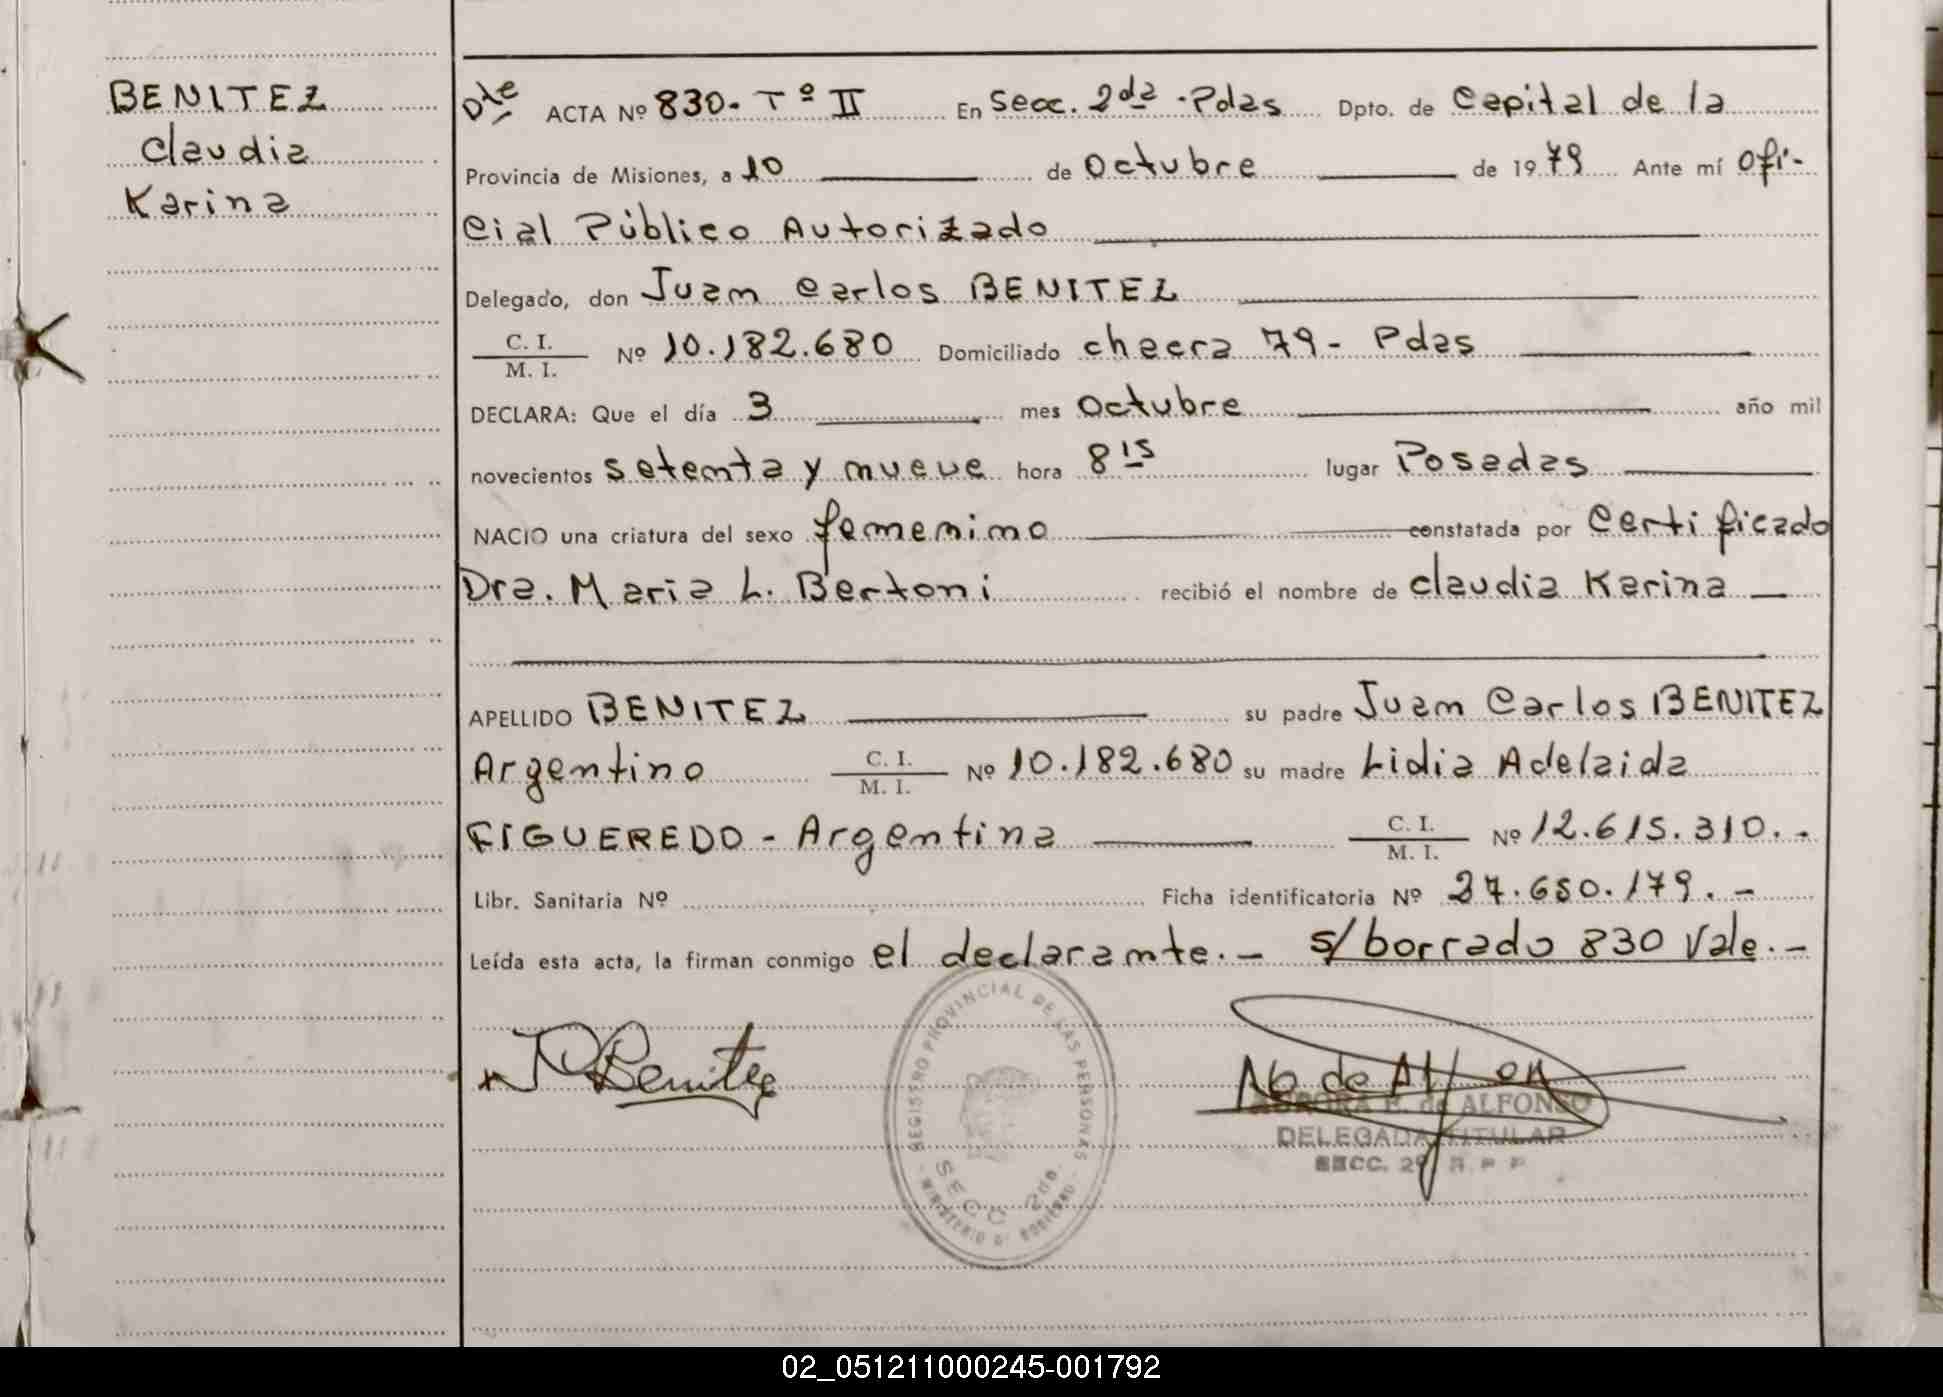 BENITEZ
Claudia
Karina
Dte ACTA Nº 830- Tº II En Secc. 2da -Pdas Dpto. de Capital de la
Provincia de Misiones, a 10 de Octubre de 1979 Ante mí Ofi-
cial Público Autorizado
Delegado, don Juan Carlos BENITEZ
C. I.
M. I. Nº 10.182.680 Domiciliado chacra 79- Pdas
DECLARA: Que el día 3 mes Octubre año mil
novecientos setenta y nueve hora 8 15 lugar Posadas
NACIO una criatura del sexo femenino constatada por Certificado
Dra. Maria L. Bertoni recibió el nombre de Claudia Karina
APELLIDO BENITEZ su padre Juan Carlos BENITEZ
Argentino C. I. M. I. Nº 10.182.680 su madre Lidia Adelaida
FIGUEREDO - Argentina C. I. M. I. Nº 12.615.310.-
Libr. Sanitaria Nº Ficha identificatoria Nº 27.650.179.-
Leída esta acta, la firman conmigo el declarante.- s/borrado 830 Vale.-
Benitez
REGISTRO PROVINCIAL DE LAS PERSONAS
SECC. 2da
MINISTERIO DE GOBIERNO
AURORA E. de ALFONSO
DELEGADA TITULAR
SECC. 2ª R P P
02_051211000245-001792